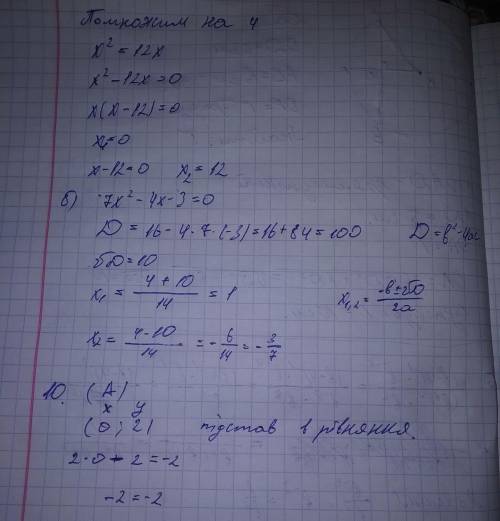 Помножим на 4
x² = 12x
x² - 12x = 0
x(x - 12) = 0
x₁ = 0
x - 12 = 0 x₂ = 12
б) 7x² - 4x - 3 = 0
D = 16 - 4 · 7 · (-3) = 16 + 84 = 100 D = b² - 4ac
√D = 10
x₁ = (4 + 10)/14 = 1 x₁,₂ = (-b ± √D)/2a
x₂ = (4 - 10)/14 = -6/14 = -3/7
10. (A)
x y
(0; 2) підстав в рівняння.
2 · 0 - 2 = -2
-2 = -2